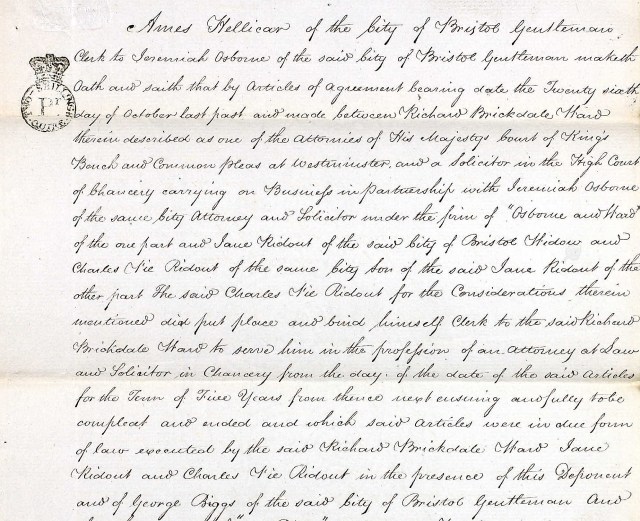 Ames Hellicar of the City of Bristol Gentleman
Clerk to Jeremiah Osborne of the said City of Bristol Gentleman maketh
Oath and saith that by Articles of Agreement bearing date the Twenty sixth
day of October last past and made between Richard Brickdale Ward
therein described as one of the Attornies of His Majestys Court of Kings
Bench and Common Pleas at Westminster, and a Solicitor in the High Court
of Chancery carrying on Business in partnership with Jeremiah Osborne
of the same City Attorney and Solicitor under the firm of "Osborne and Ward"
of the one part and Jane Ridout of the said City of Bristol Widow and
Charles Vie Ridout of the same City Son of the said Jane Ridout of the
other part The said Charles Vie Ridout for the Considerations therein
mentioned did put place and bind himself Clerk to the said Richard
Brickdale Ward to serve him in the profession of an Attorney at Law
and Solicitor in Chancery from the day of the date of the said Articles
for the Term of Five Years from thence next ensuing and fully to be
compleat and ended and which said Articles were in due form
of law executed by the said Richard Brickdale Ward Jane
Ridout and Charles Vie Ridout in the presence of this Deponent
and of George Biggs of the said City of Bristol Gentleman And